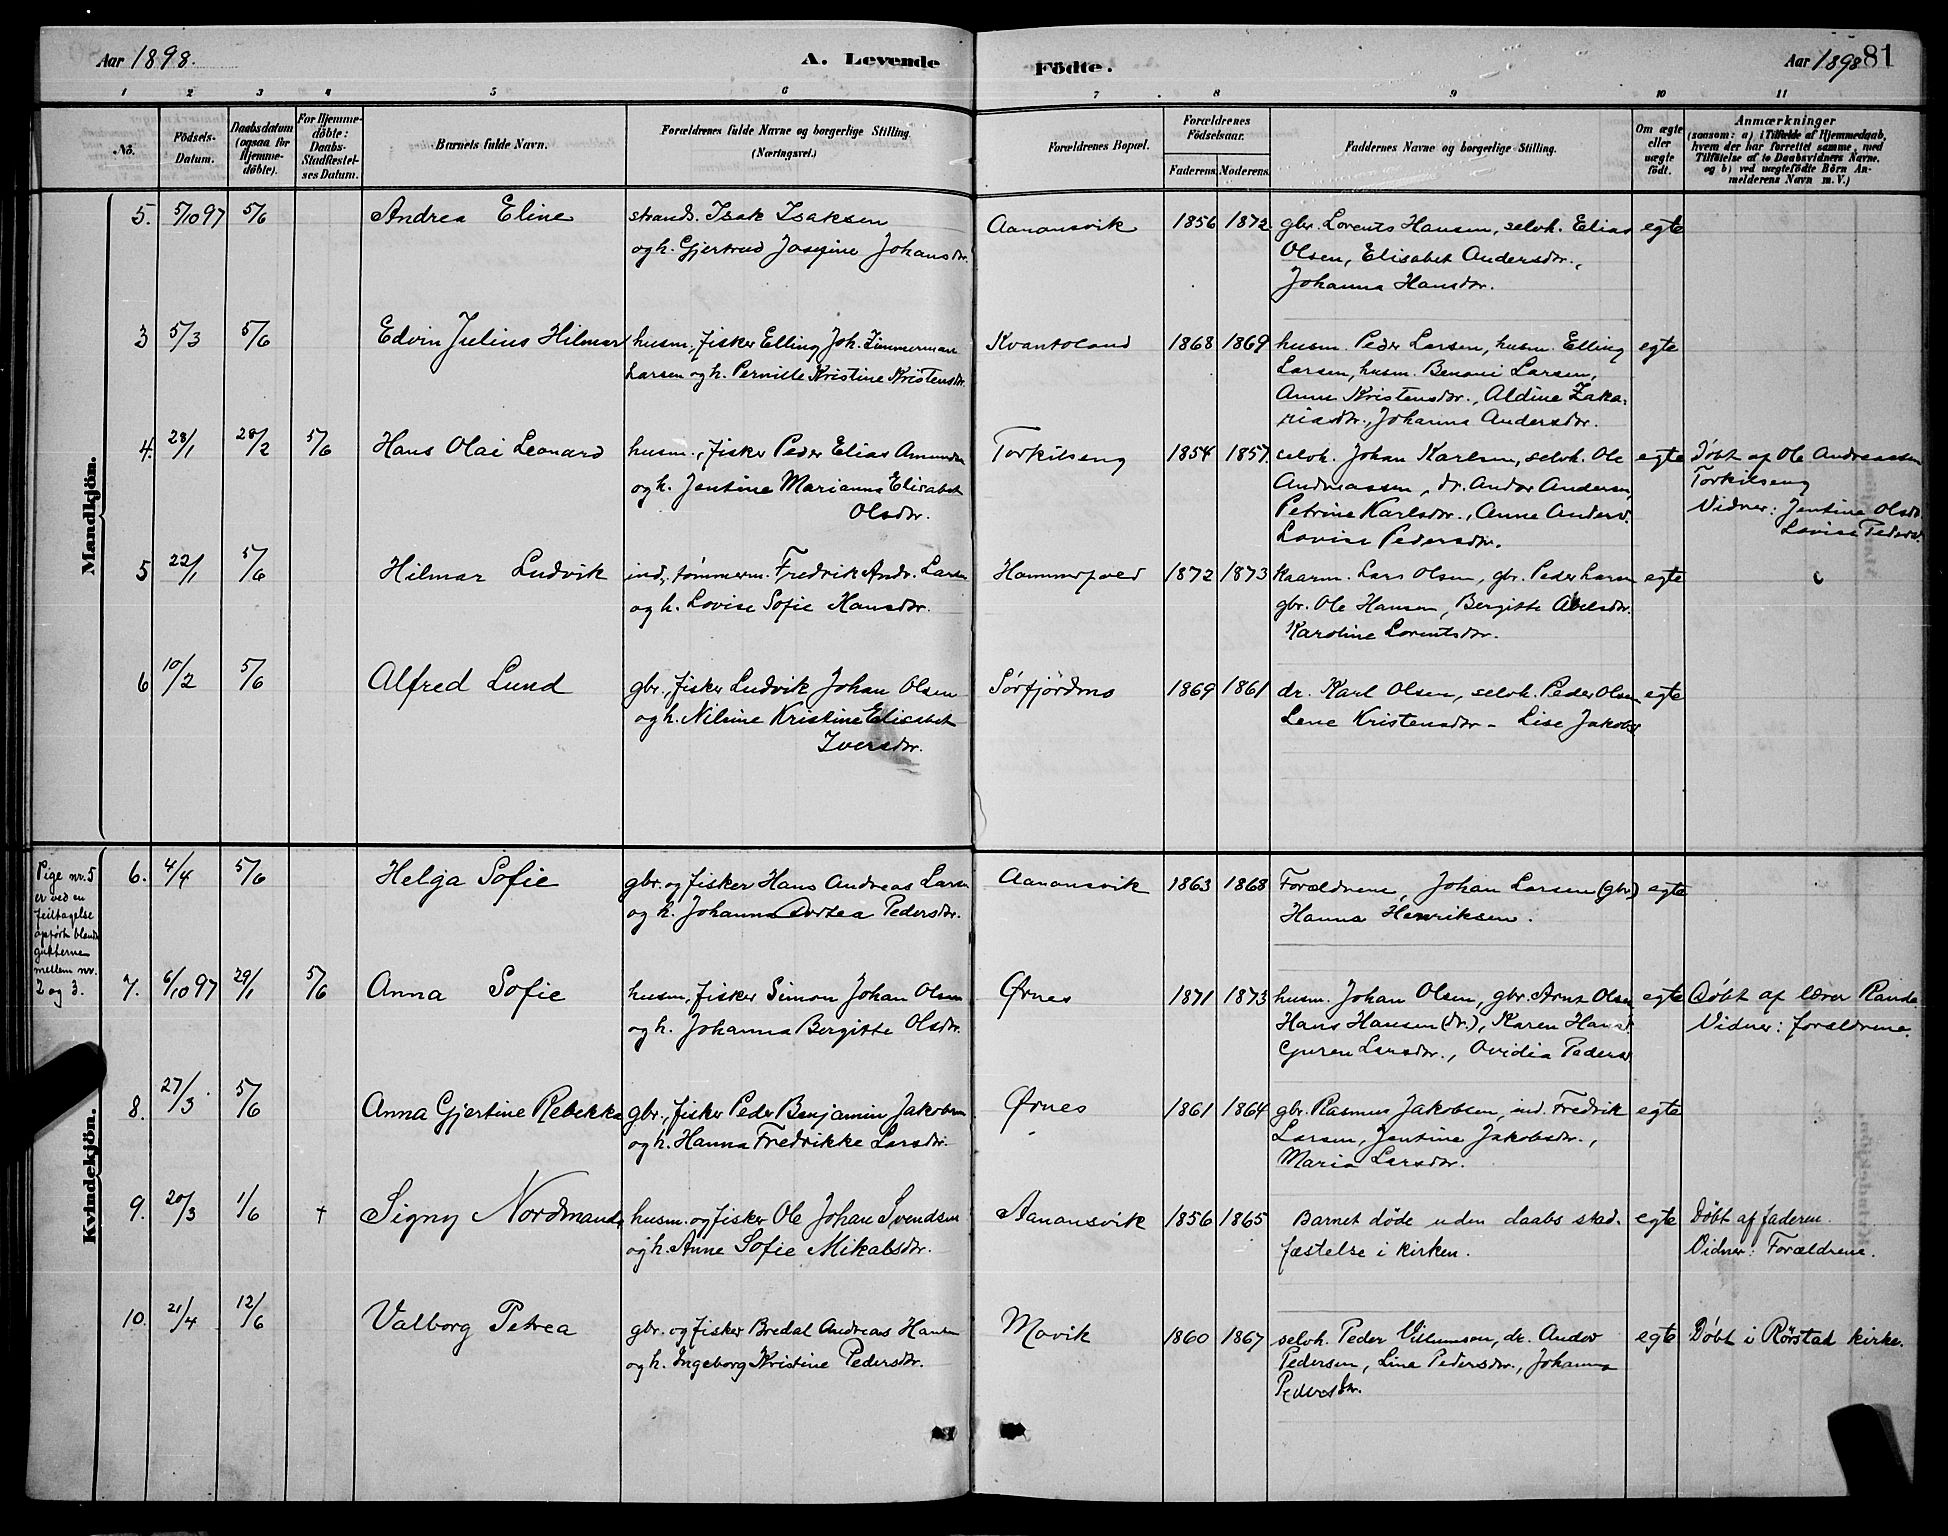 Aar 1898.
A. Levende
Födte.
Aar 1898
81
1 2 3 4 5 6 7 8 9 10 11
No.
Födsels-
Datum.
Daabsdatum
(ogsaa for
Hjemme-
döbte).
For Hjemme-
döbte:
Daabs-
Stadfæstel-
ses Datum.
Barnets fulde Navn.
Forældrenes fulde Navne og borgerlige Stilling.
(Næringsvei.)
Forældrenes Bopæl.
Forældrenes
Födselsaar.
Faderens. Moderens.
Faddernes Navne og borgerlige Stilling.
Om ægte
eller
uægte
födt.
Anmærkninger
(saasom: a) i Tilfælde af Hjemmedaab,
hvem der har forrettet samme, med
Tilföielse af to Daabsvidners Navne.
og b) ved uægtefödte Börn An-
melderens Navn m. V.)
Mandkjön.
5. 5/10 97 5/6 Andrea Eline strands. Isak Isaksen Aanonsvik 1856 1872. gbr. Lorents Hansen, selvh. Elias egte
ogh. Gjertrud Josefine Johansdr. Olsen, Elisabet Andersdr.,
Johanna Hansdr.
3 5/3 5/6 Edvin Julius Hilmar husm. fisker Elling Joh. Zimmerman Kvantoland 1868 1869 husm. Peder Larsen, husm. Elling egte
Larsen ogh. Pernille Kristine Kristensdr. Larsen, husm. Benoni Larsen,
Anne Kristensdr., Aldine Zaka-
riasdr., Johanna Andersdr.
4. 28/1 28/2 5/6 Hans Olai Leonard husm., fisker Peder Elias Amundsn Torkilseng 1854 1857. selvh. Johan Karlsen, selvh. Ole egte Døbt af Ole Andreassen
ogh. Jentine Marianna Elisabet Andreassen, dr. Andor Andersen, Torkilseng
Olsdr. Petrine Karlsdr., Anne Andersd. Vidner: Jentine Olsd.
Lovise Pedersdr. Lovise Pedersd.
5 22/1 5/6 Hilmar Ludvik ind., tømmerm. Fredrik Andr. Larsen Hammerfald 1872 1873 kaarm. Lars Olsen, gbr. Peder Larsen egte
ogh. Lovise Sofie Hansdr. gbr. Ole Hansen, Bergitte Abelsdr.
Karoline Lorentsdr.
6 10/2 5/6 Alfred Lund gbr., fisker Ludvik Johan Olsen Sörfjördmo 1869 1861 dr. Karl Olsen, selvh. Peder Olsen egte
ogh. Nilsine Kristine Elisabet Lene Kristensdr - Lise Jakobsd
Iversdr.
Pige nr. 5
er ved en
feiltagelse
opført blandt
gutterne
mellem nr.
2 og 3.
Kvindekjön.
6. 4/4 5/6 Helga Sofie gbr. og fisker Hans Andreas Larsen Aanonsvik 1863 1868 Forældrene, Johan Larsen (gbr) egte
og h. Johanna Dortea Pedersdr. Hanna Henriksen.
7. 6/10 97 29/1 5/6 Anna Sofie husm., fisker Simon Johan Olsen Ørnes 1871 1873 husm. Johan Olsen, gbr. Arnt Olsen egte Døbt af lærer Randa
ogh. Johanna Bergitte Olsdr. Hans Hansen (dr.), Karen Hansd. Vidner: forældrene.
Guren Larsdr., Ovidia Pedersd
8. 27/3 5/6 Anna Gjertine Rebekka gbr., fisker Peder Benjamin Jakobsen Ørnes 1861 1864 gbr. Rasmus Jakobsen, ind. Fredrik egte
ogh. Hanna Fredrikke Larsdr. Larsen, Jentine Jakobsdr.,
Maria Larsdr.
9. 20/3 1/6 † Signy Nordmanda husm. og fisker Ole Johan Svendsen Aanonsvik 1856 1865 Barnet døde uden daabs stad- egte Døbt af faderen.
ogh. Anne Sofie Mikalsdr. fæstelse i kirken. Vidner: Forældrene.
10. 21/4 12/6 Valborg Petrea gbr. og fisker Bredal Andreas Hansen Movik 1860 1867 selvh. Peder Villumsen, dr. Andor egte Døbt i Rörstad kirke.
ogh. Ingeborg Kristine Pedersdr. Pedersen, Lina Pedersdr., Johanna
Pedersdr.